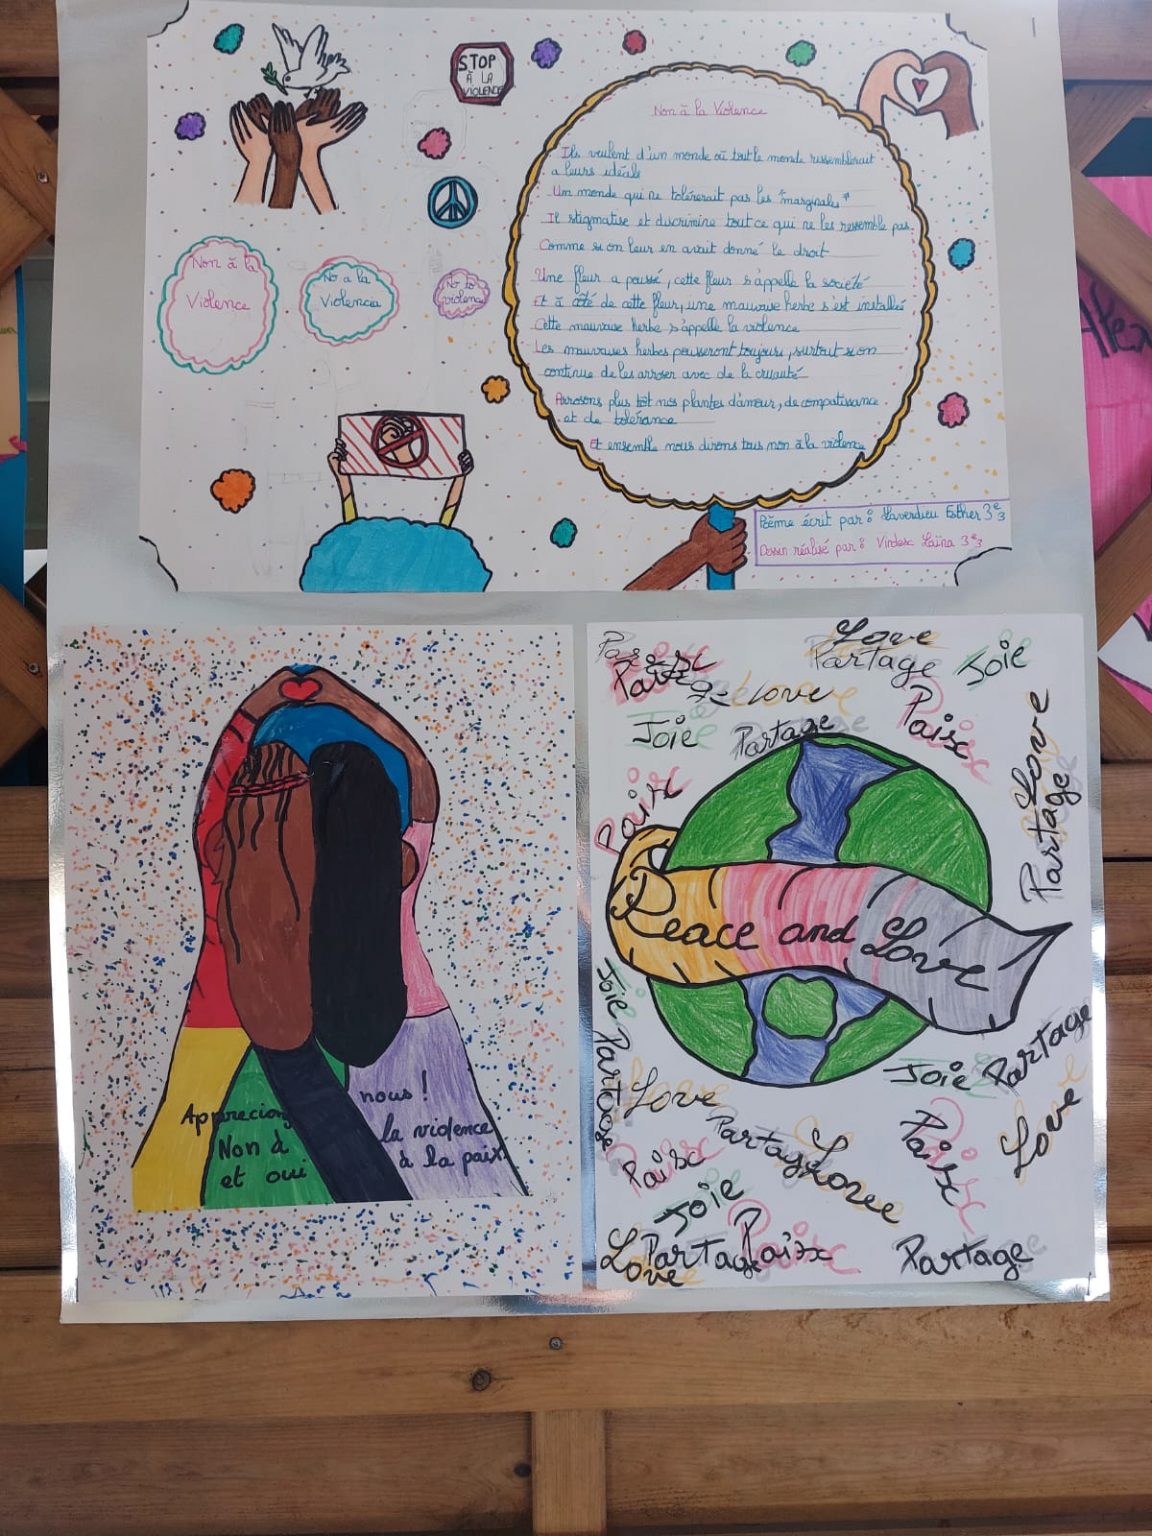 STOP
À LA
VIOLENCE
Non à la
Violence
No à la
Violencea
No to
violence
Non à la Violence
Ils veulent d'un monde où tout le monde ressemblerait
a leurs idéale
Un monde qui ne tolérerait pas les "marginales"
Il stigmatise et discrimine tout ce qui ne les ressemble pas
Comme si on leur en avait donné le droit
Une fleur a poussé, cette fleur s'appelle la société
Et à côté de cette fleur, une mauvaise herbe s'est installée
Cette mauvaise herbe s'appelle la violence
Les mauvaises herbes pousseront toujours, surtout si on
continue de les arroser avec de la cruauté
Arrosons plus tôt nos plantes d'amour, de compatissance
et de tolérance
Et ensemble nous dirons tous non à la violence
Poème écrit par : Haverdieu Esther 3e3
Dessin réalisé par : Laïna 3e3
Apprecions nous !
Non à la violence
et oui à la paix
Love
Partage
Joie
Love
Paix
Joie
Partage
Paix
Love
Partage
Paix
Peace and Love
Joie
Partage
Joie
Partage
Love
Love
Partage
Love
Paix
Paix
Joie
Love
Partage
Paix
Love
Partage